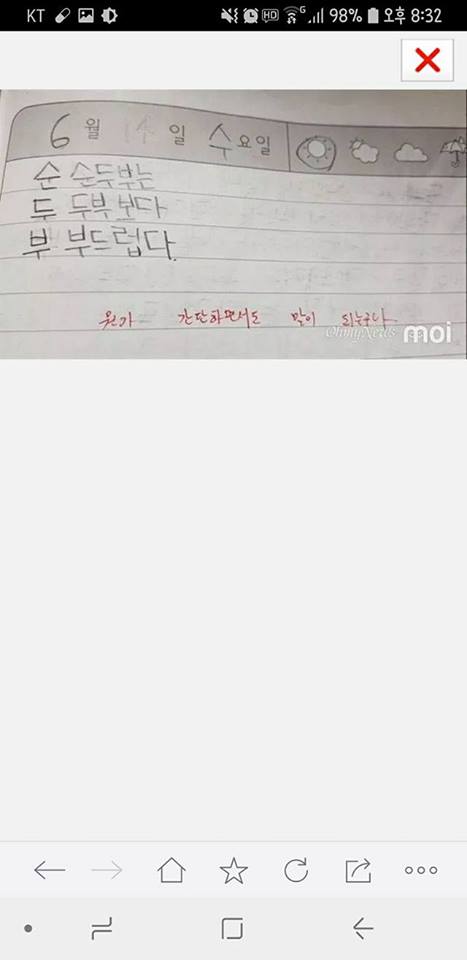 KT HD G 98% 오후 8:32
6월 14일 수요일
순 순두부는
두 두부보다
부 부드럽다.
뭔가 간단하면서도 말이 되는구나
OhmyNews moi